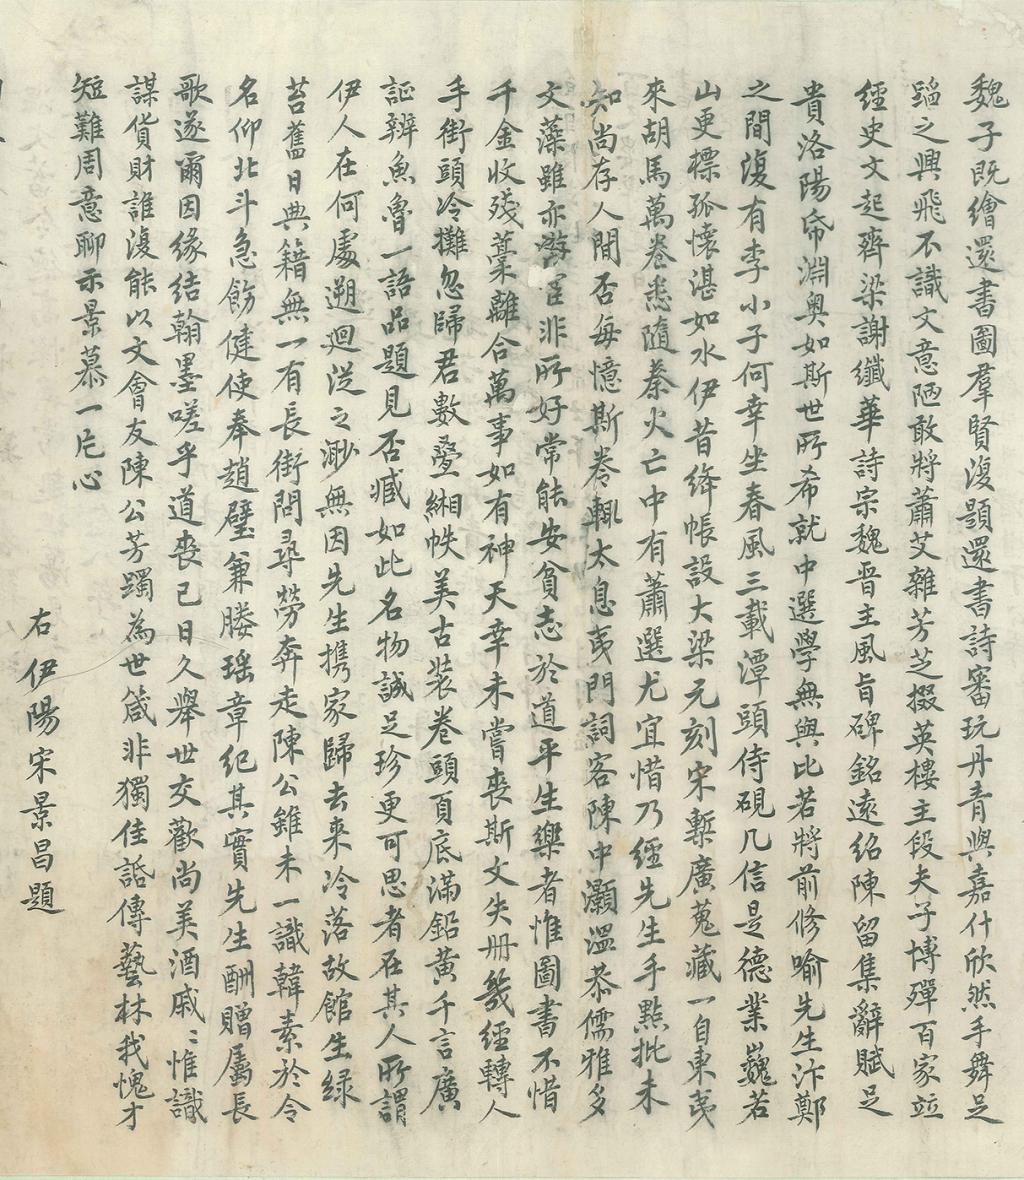 魏子既繪還書圖羣賢復題還書詩審玩丹青與嘉什欣然手舞足
蹈之興飛不識文意陋敢將蕭艾雜芳芝掇英樓主段夫子博殫百家並
經史文起齊梁謝纖華詩宗魏晋主風旨碑銘遠紹陳留集辭賦足
貴洛陽帋淵奥如斯世所希就中選學無與比若將前修喻先生汴鄭
之間復有李小子何幸坐春風三載潭頭侍硯几信是德業巍若
山更標孤懷湛如水伊昔絳帳設大梁元刻宋槧廣蒐藏一自東夷
來胡馬萬卷悉隨秦火亡中有蕭選尤宜惜乃經先生手點批未
知尚存人間否每憶斯卷輒太息夷門詞客陳中灝溫恭儒雅多
文藻雖亦游宦非所好常能安貧志於道平生樂者惟圖書不惜
千金收殘藁離合萬事如有神天幸未嘗喪斯文失册幾經轉人
手街頭冷攤忽歸君數疊緗帙美古裝卷頭頁底滿鉛黄千言廣
証辨魚魯一語品題見否臧如此名物誠足珍更可思者在其人所謂
伊人在何處遡迴從之渺無因先生携家歸去来冷落故館生緑
苔舊日典籍無一有長街問尋勞奔走陳公雖未一識韓素於令
名仰北斗急飭健使奉趙璧兼媵瑶章紀其實先生酬贈屬長
歌遂爾因緣結翰墨嗟乎道喪已日久舉世交歡尚美酒戚〻惟識
謀貨財誰復能以文會友陳公芳躅為世箴非獨佳話傳藝林我愧才
短難周意聊示景慕一片心
右伊陽宋景昌題